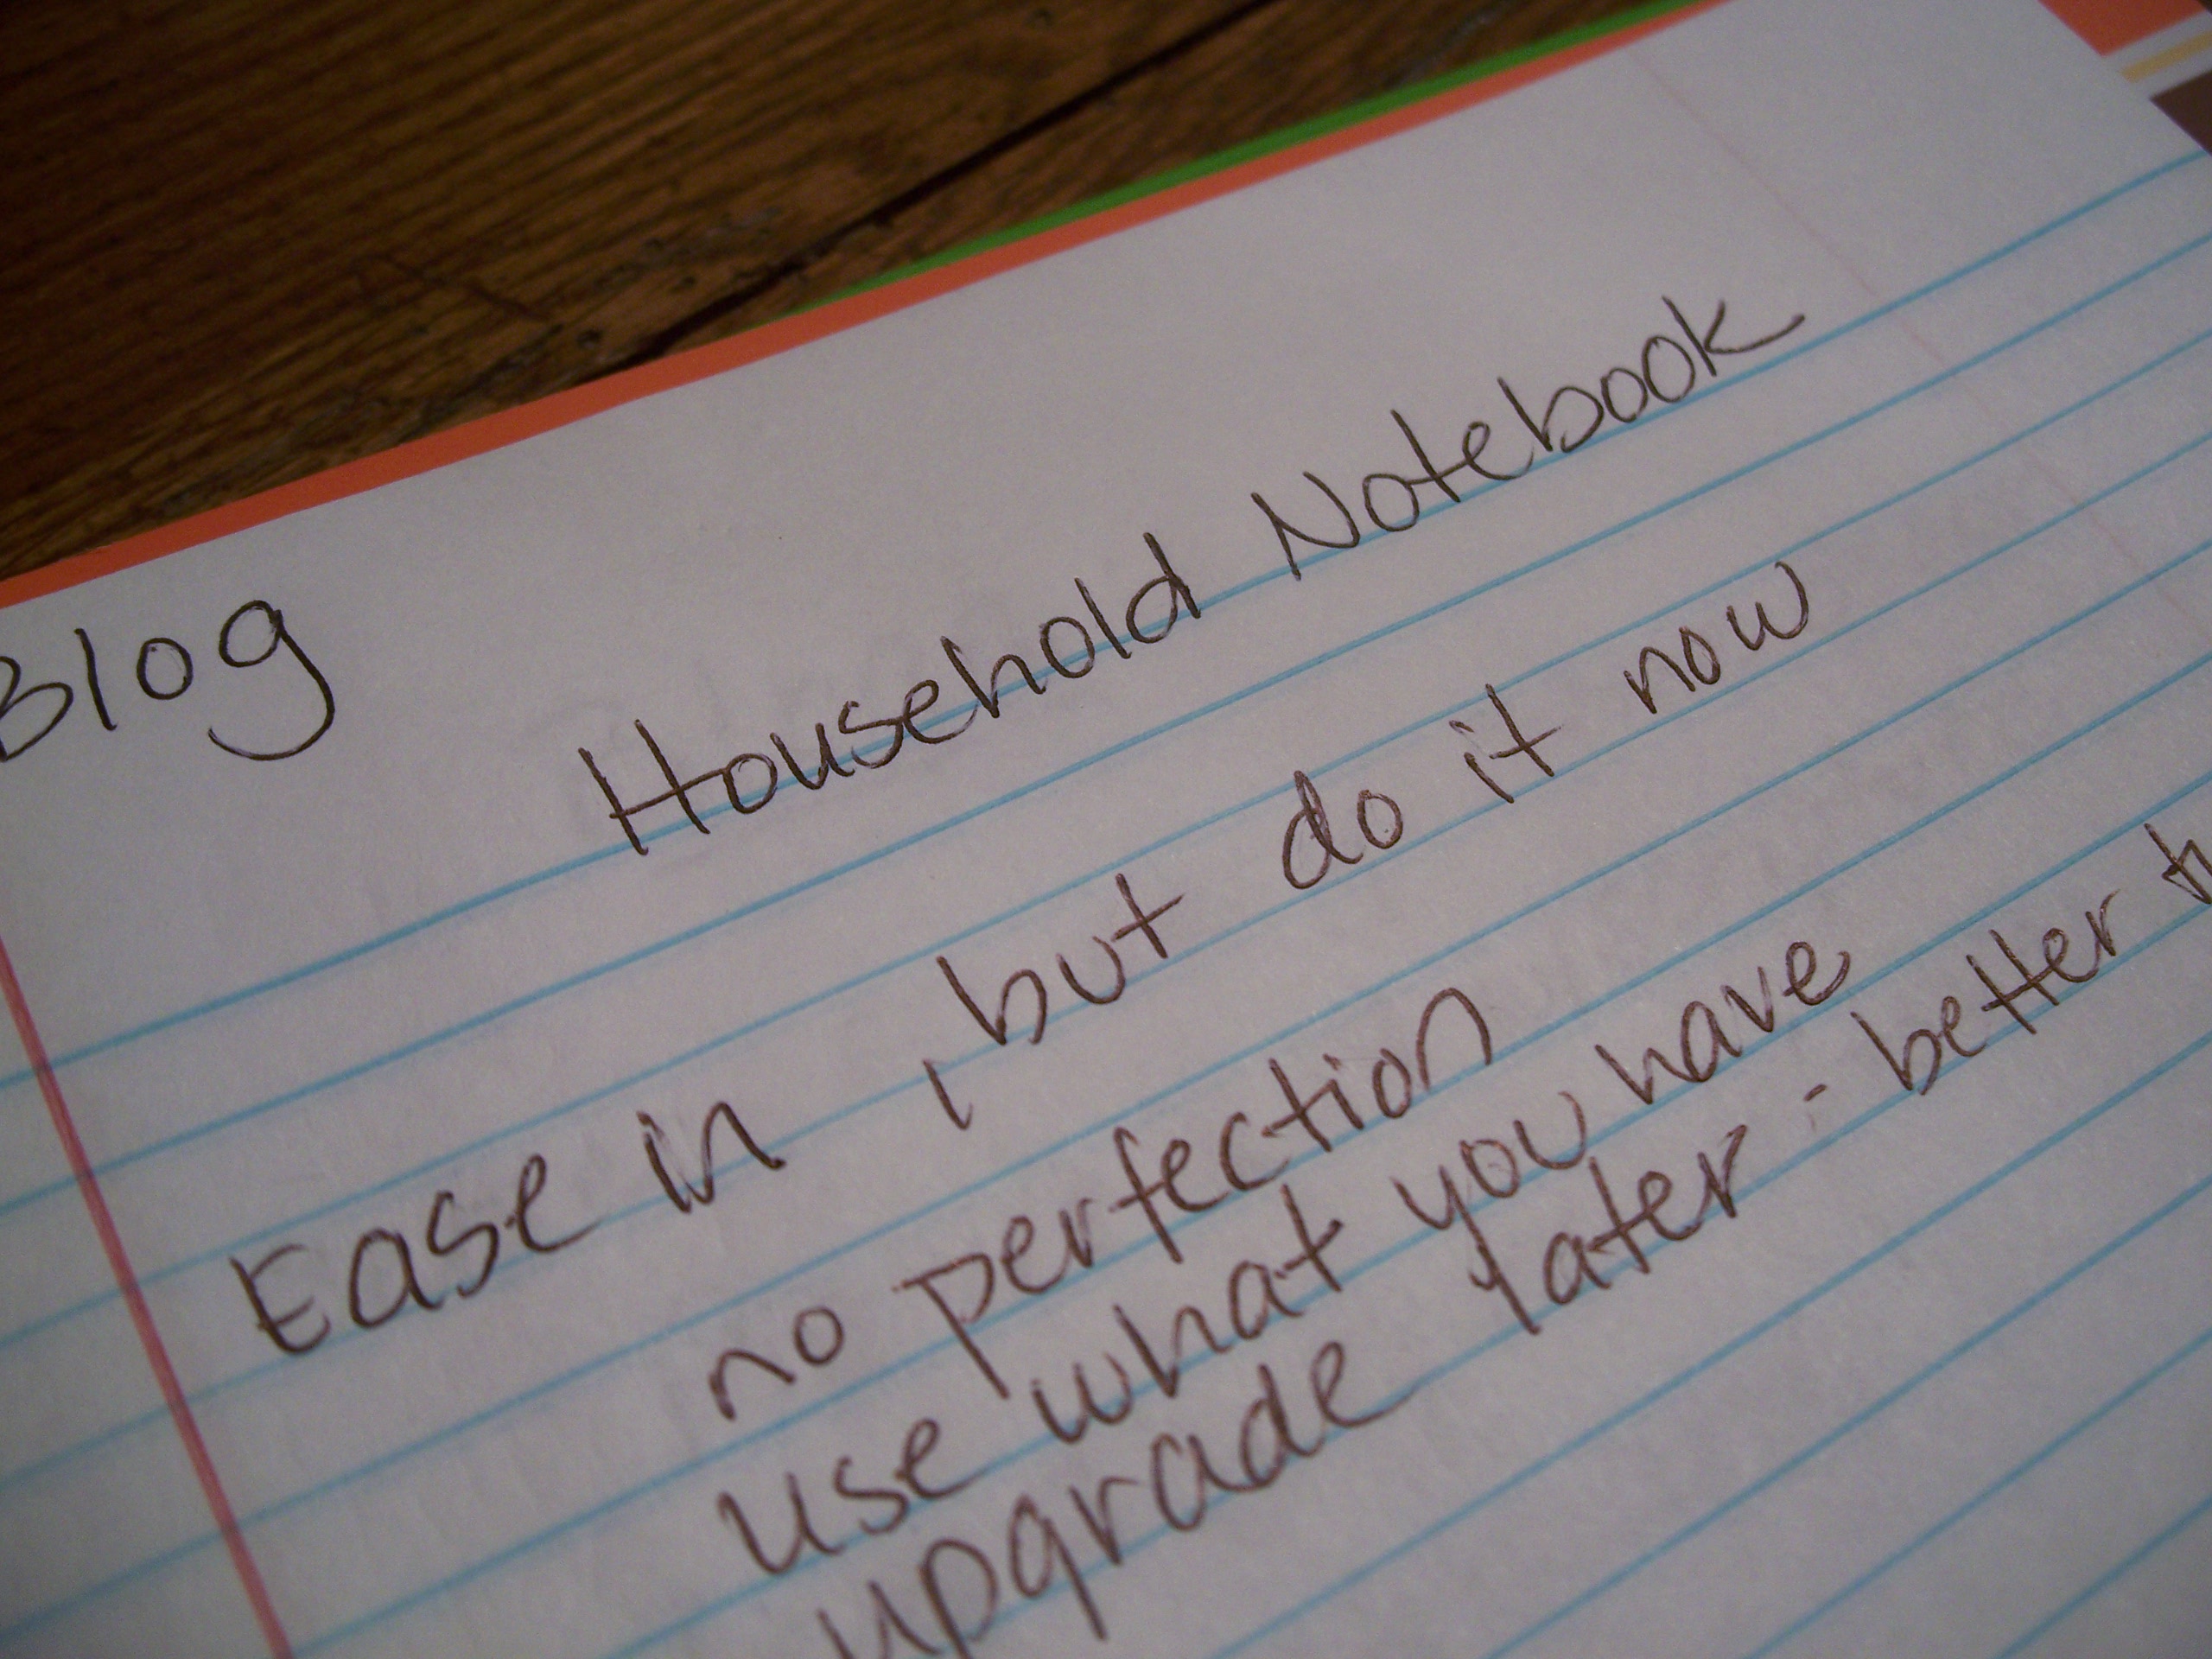 Blog
Household Notebook
Ease in, but do it now
no perfection
use what you have
upgrade later - better